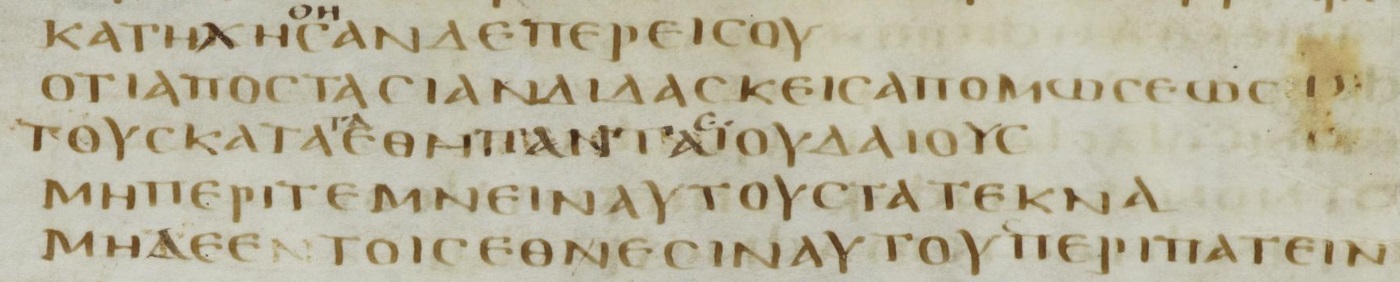 ΚΑΤΗΧΗΘΗCΑΝΔΕΠΕΡΕΙCΟΥ
ΟΤΙΑΠΟCΤΑCΙΑΝΔΙΔΑCΚΕΙCΑΠΟΜΩCΕΩC
ΤΟΥCΚΑΤΑΤΑΕΘΗΠΑΝΤΑCΪΟΥΔΑΙΟΥC
ΜΗΠΕΡΙΤΕΜΝΕΙΝΑΥΤΟΥCΤΑΤΕΚΝΑ
ΜΗΔΕΕΝΤΟΙCΕΘΝΕCΙΝΑΥΤΟΥΠΕΡΙΠΑΤΕΙΝ